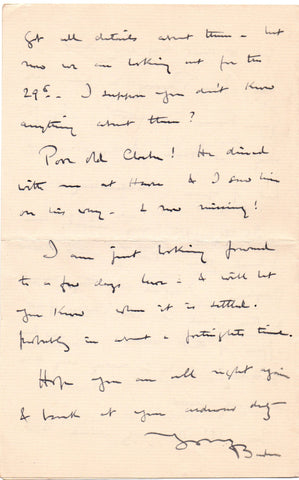 get all details about them - but
now we are looking out for the
29th - I suppose you don't know
anything about them?
Poor old! He dined
with me at & I saw him
on his way - & now missing!
I am just looking forward
to a few days leave - & will let
you know when it is settled.
probably in about a fortnights time.
Hope you are all right again
& back at your duty
Yours